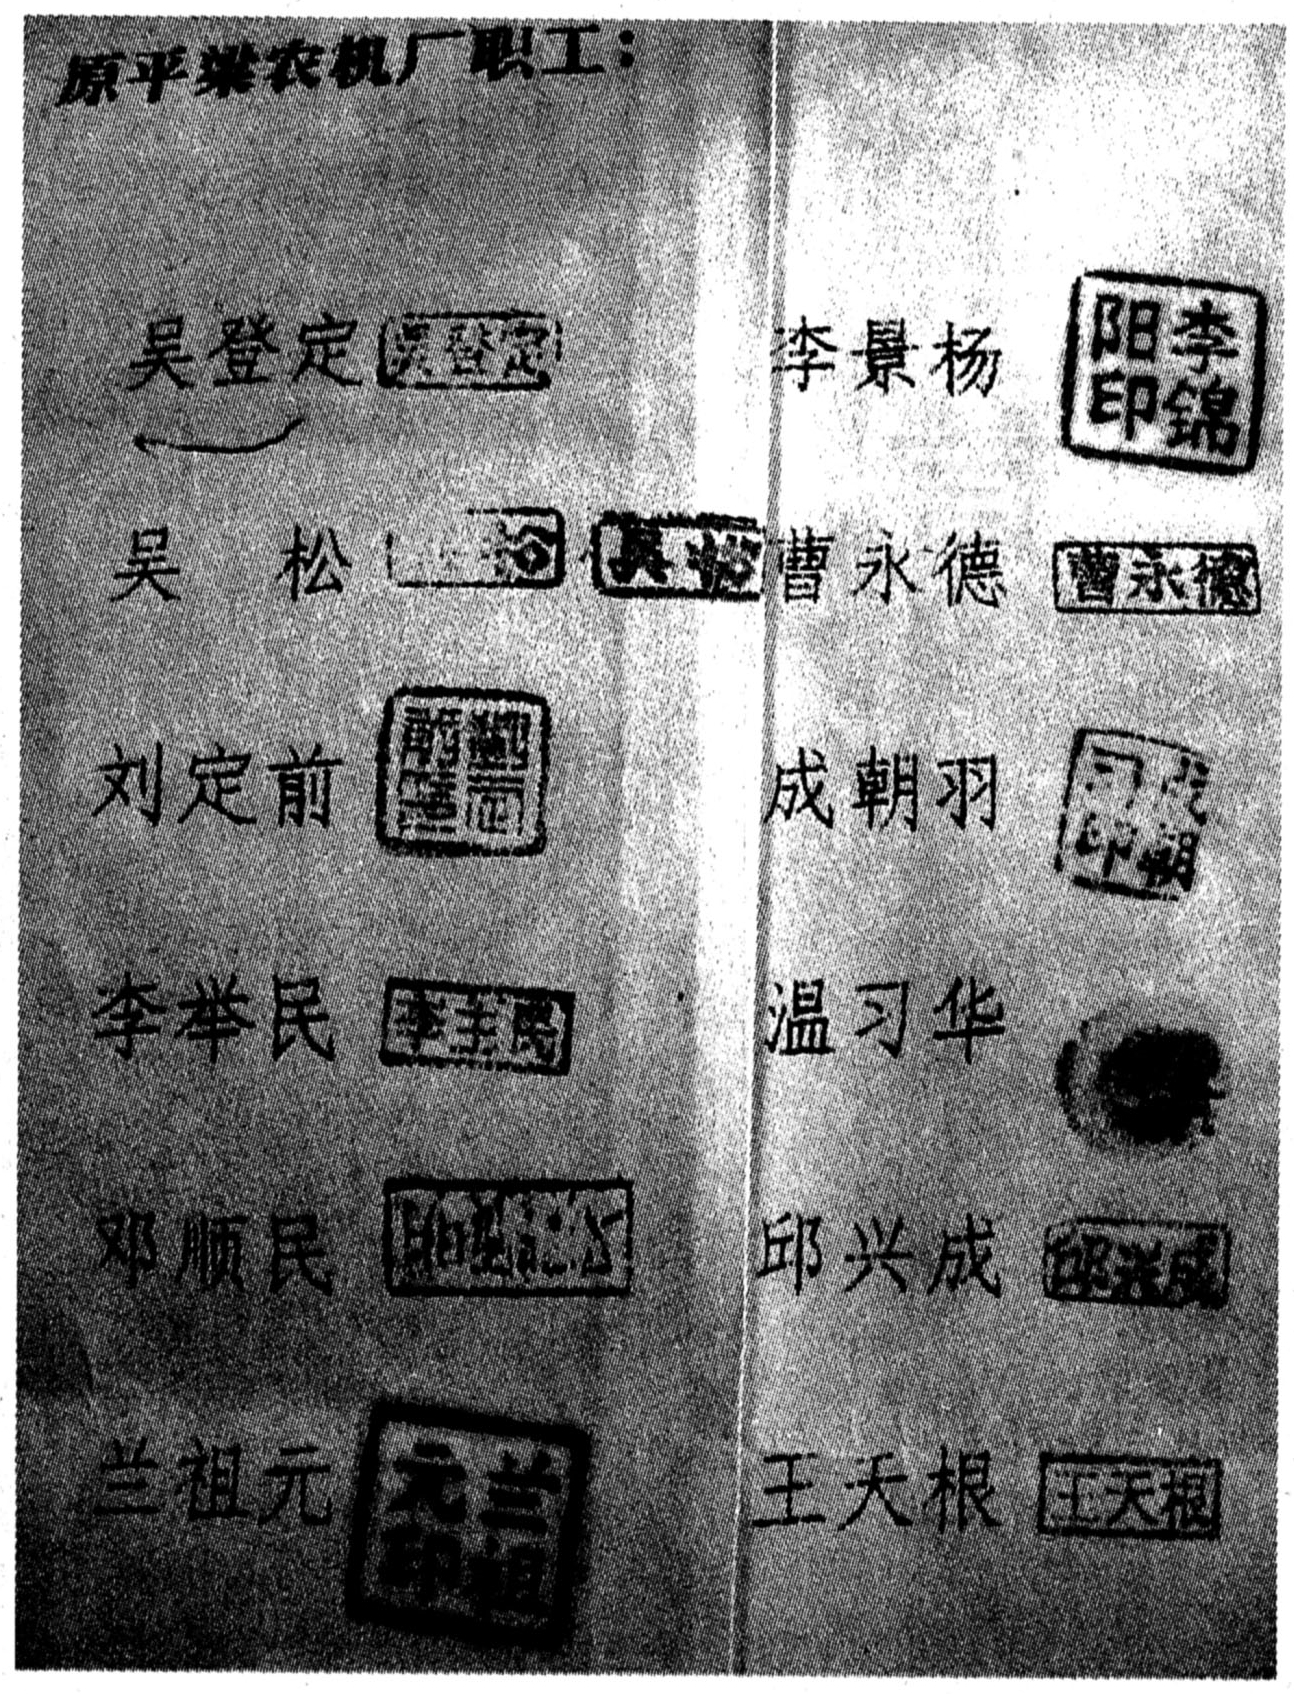 原平梁农机厂职工：
吴登定 吴登定 李景杨 李锦阳印
吴 松 吴松 曹永德 曹永德
刘定前 成朝羽 成朝羽印
李举民 温习华
邓顺民 邱兴成 邱兴成
兰祖元 兰祖元印 王天根 王天根